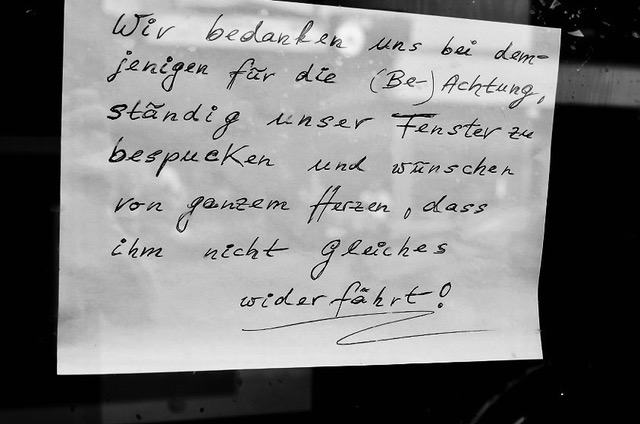 Wir bedanken uns bei dem-
jenigen für die (Be-) Achtung,
ständig unser Fenster zu
bespucken und wünschen
von ganzem Herzen, dass
ihm nicht gleiches
widerfährt!